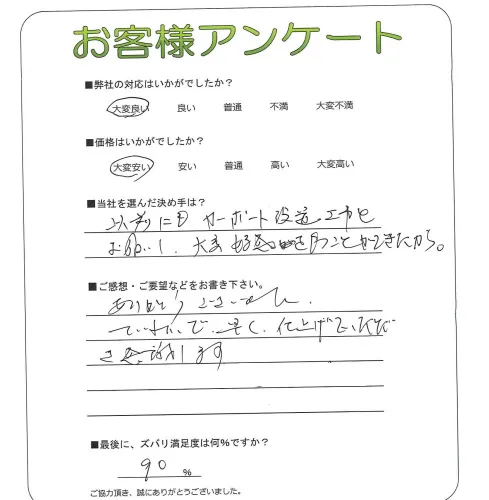 お客様アンケート
■弊社の対応はいかがでしたか?
大変良い 良い 普通 不満 大変不満
■価格はいかがでしたか?
大変安い 安い 普通 高い 大変高い
■当社を選んだ決め手は?
以前にも カーポート設置工事を
お願いし、大変 ことができたから。
■ご感想・ご要望などをお書き下さい。
ありがとうございました。
ていねいで 早く、仕上げていただ
き感謝します
■最後に、ズバリ満足度は何%ですか?
90 %
ご協力頂き、誠にありがとうございました。